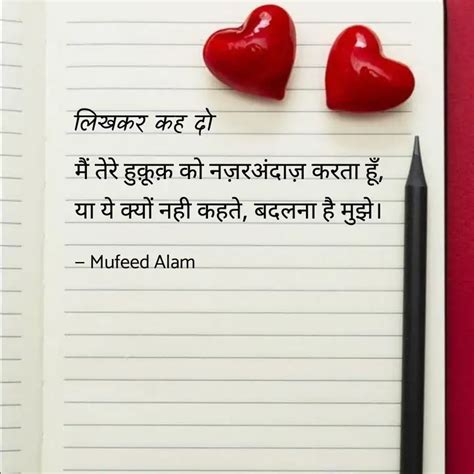 लिखकर कह दो
मैं तेरे हुक़ूक़ को नज़रअंदाज़ करता हूँ,
या ये क्यों नही कहते, बदलना है मुझे।
– Mufeed Alam